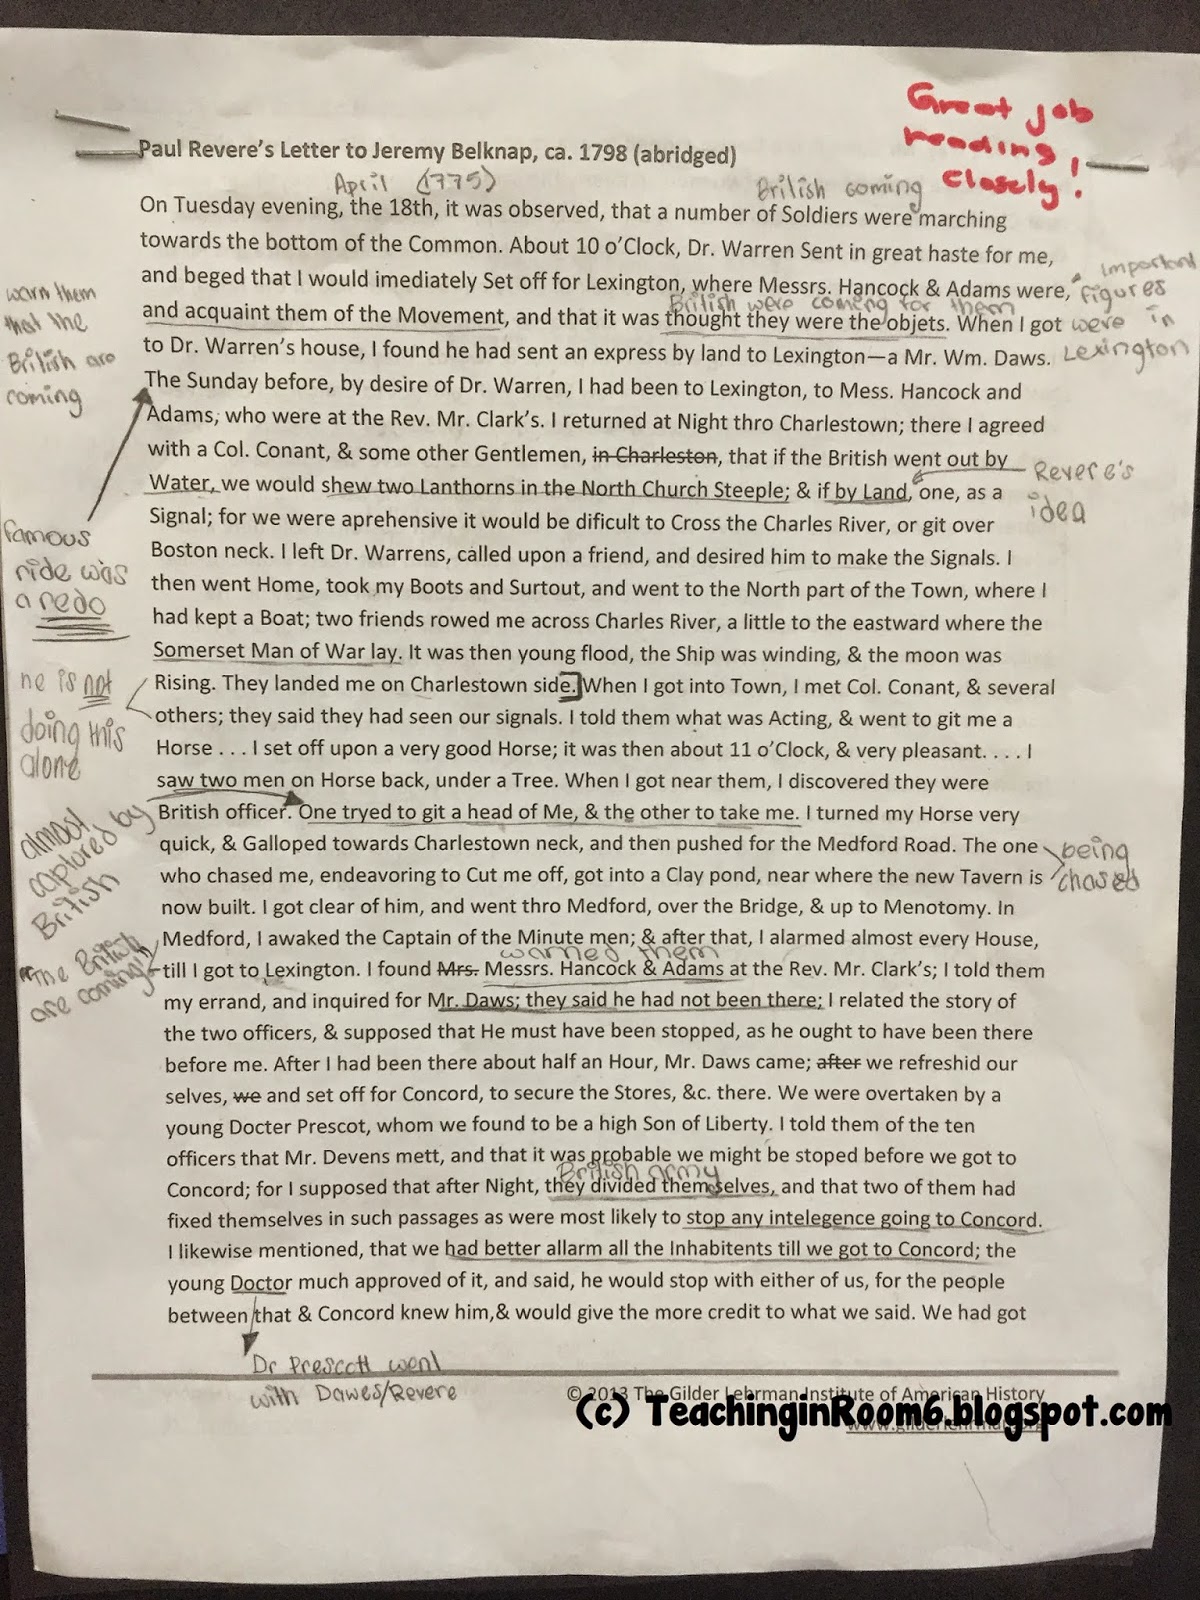 Great job
reading
closely!
Paul Revere's Letter to Jeremy Belknap, ca. 1798 (abridged)
April (1775)
British coming
On Tuesday evening, the 18th, it was observed, that a number of Soldiers were marching
towards the bottom of the Common. About 10 o'Clock, Dr. Warren Sent in great haste for me,
and beged that I would imediately Set off for Lexington, where Messrs. Hancock & Adams were,
important
figures
were in
Lexington
warn them
that the
British are
coming
British were coming for them
and acquaint them of the Movement, and that it was thought they were the objets. When I got
to Dr. Warren's house, I found he had sent an express by land to Lexington—a Mr. Wm. Daws.
The Sunday before, by desire of Dr. Warren, I had been to Lexington, to Mess. Hancock and
Adams, who were at the Rev. Mr. Clark's. I returned at Night thro Charlestown; there I agreed
with a Col. Conant, & some other Gentlemen, in Charleston, that if the British went out by
Water, we would shew two Lanthorns in the North Church Steeple; & if by Land, one, as a
Revere's
idea
Signal; for we were aprehensive it would be dificult to Cross the Charles River, or git over
famous
ride was
a redo
Boston neck. I left Dr. Warrens, called upon a friend, and desired him to make the Signals. I
then went Home, took my Boots and Surtout, and went to the North part of the Town, where I
had kept a Boat; two friends rowed me across Charles River, a little to the eastward where the
Somerset Man of War lay. It was then young flood, the Ship was winding, & the moon was
Rising. They landed me on Charlestown side. When I got into Town, I met Col. Conant, & several
he is not
doing this
alone
others; they said they had seen our signals. I told them what was Acting, & went to git me a
Horse . . . I set off upon a very good Horse; it was then about 11 o'Clock, & very pleasant. . . . I
saw two men on Horse back, under a Tree. When I got near them, I discovered they were
British officer. One tryed to git a head of Me, & the other to take me. I turned my Horse very
almost
captured by
British
quick, & Galloped towards Charlestown neck, and then pushed for the Medford Road. The one
who chased me, endeavoring to Cut me off, got into a Clay pond, near where the new Tavern is
being
chased
now built. I got clear of him, and went thro Medford, over the Bridge, & up to Menotomy. In
Medford, I awaked the Captain of the Minute men; & after that, I alarmed almost every House,
"The British
are coming"
warned them
till I got to Lexington. I found Mrs. Messrs. Hancock & Adams at the Rev. Mr. Clark's; I told them
my errand, and inquired for Mr. Daws; they said he had not been there; I related the story of
the two officers, & supposed that He must have been stopped, as he ought to have been there
before me. After I had been there about half an Hour, Mr. Daws came; after we refreshid our
selves, we and set off for Concord, to secure the Stores, &c. there. We were overtaken by a
young Docter Prescot, whom we found to be a high Son of Liberty. I told them of the ten
officers that Mr. Devens mett, and that it was probable we might be stoped before we got to
British army
Concord; for I supposed that after Night, they divided themselves, and that two of them had
fixed themselves in such passages as were most likely to stop any intelegence going to Concord.
I likewise mentioned, that we had better allarm all the Inhabitents till we got to Concord; the
young Doctor much approved of it, and said, he would stop with either of us, for the people
between that & Concord knew him,& would give the more credit to what we said. We had got
Dr Prescott went
with Dawes/Revere
© 2013 The Gilder Lehrman Institute of American History
(c) TeachinginRoom6.blogspot.com